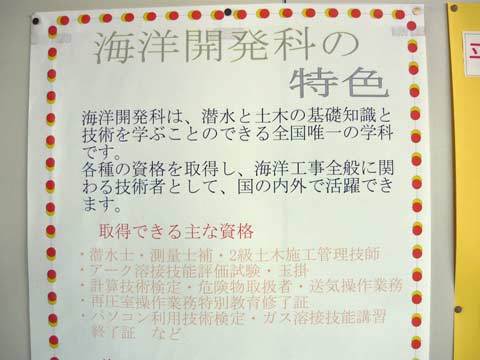 海洋開発科の
特色
海洋開発科は、潜水と土木の基礎知識と
技術を学ぶことのできる全国唯一の学科
です。
各種の資格を取得し、海洋工事全般に関
わる技術者として、国の内外で活躍でき
ます。
取得できる主な資格
・潜水士・測量士補・2級土木施工管理技師
・アーク溶接技能評価試験・玉掛
・計算技術検定・危険物取扱者・送気操作業務
・再圧室操作業務特別教育修了証
・パソコン利用技術検定・ガス溶接技能講習
終了証 など